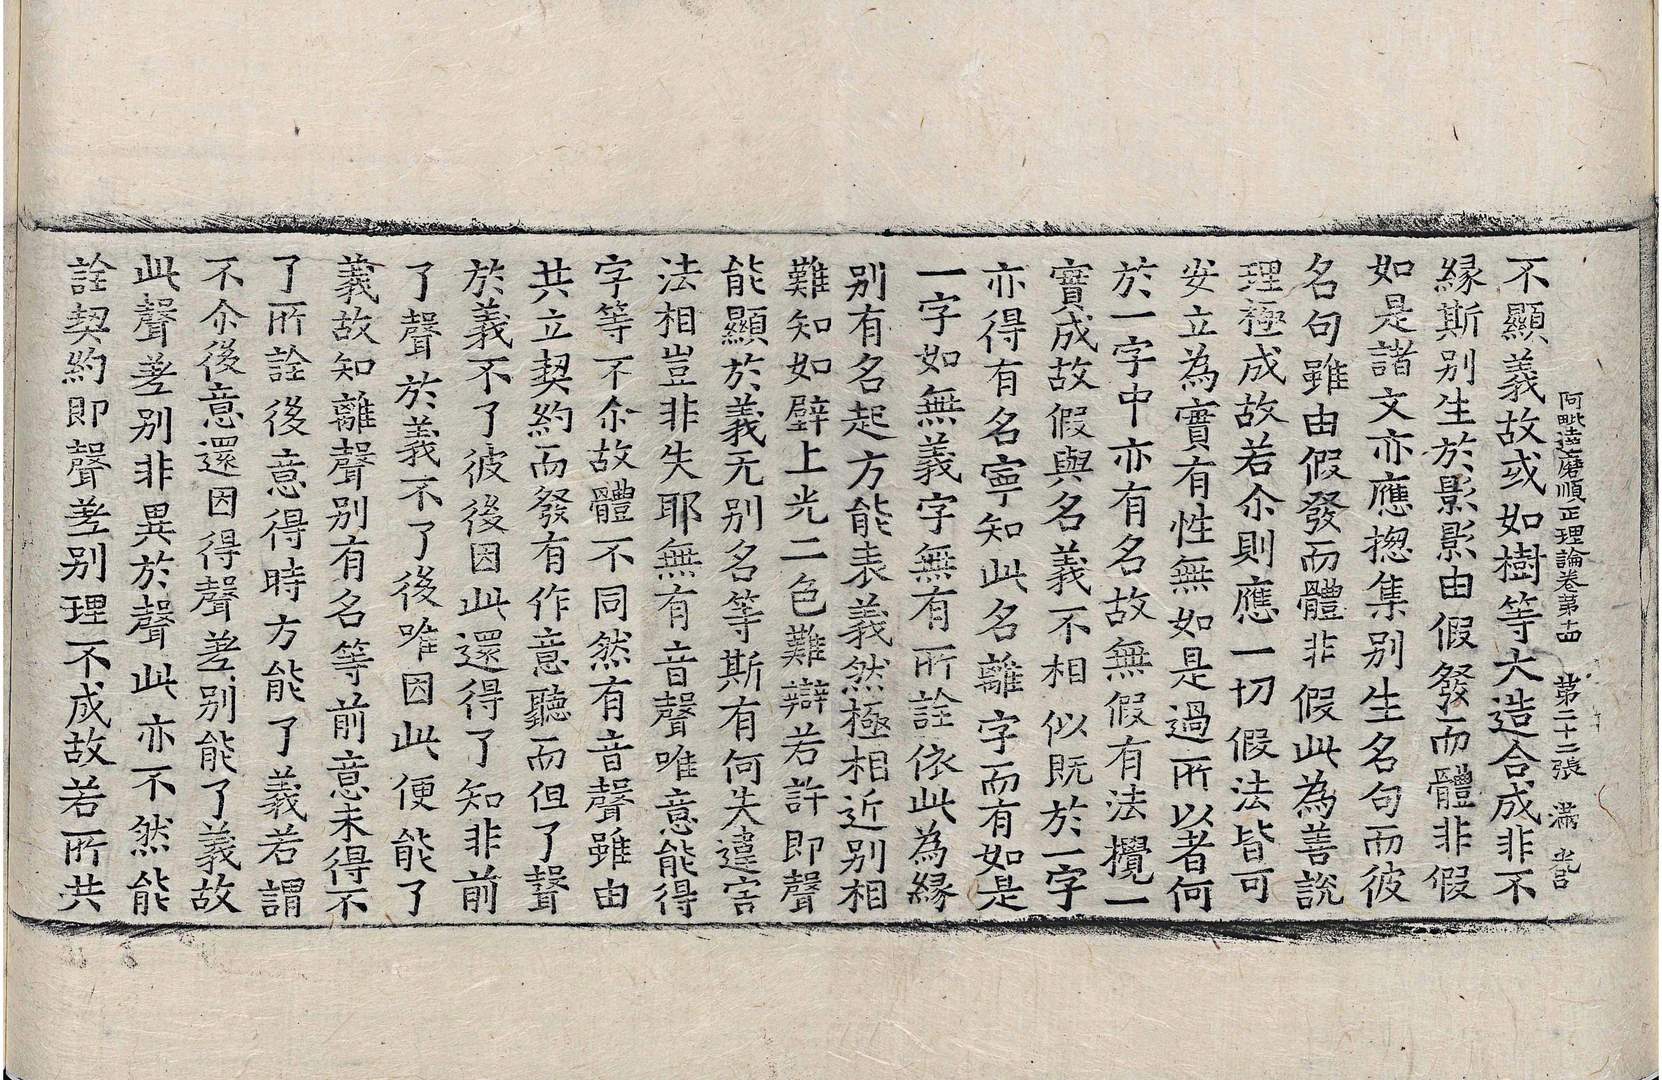 阿毗達磨順正理論卷第十四　第二十二張　滿
不顯義故或如樹等大造合成非不
緣斯别生於影影由假發而體非假
如是諸文亦應揔集别生名句而彼
名句雖由假發而體非假此為善說
理極成故若尒則應一切假法皆可
安立為實有性無如是過所以者何
於一字中亦有名故無假有法攬一
實成故假與名義不相似既於一字
亦得有名寧知此名離字而有如是
一字如無義字無有所詮依此為緣
别有名起方能表義然極相近别相
難知如壁上光二色難辯若許即聲
能顯於義无别名等斯有何失違害
法相豈非失耶無有音聲唯意能得
字等不尒故體不同然有音聲雖由
共立契約而發有作意聽而但了聲
於義不了彼後因此還得了知非前
了聲於義不了後唯因此便能了
義故知離聲别有名等前意未得不
了所詮後意得時方能了義若謂
不尒後意還因得聲差别能了義故
此聲差别非異於聲此亦不然能
詮契約即聲差别理不成故若所共